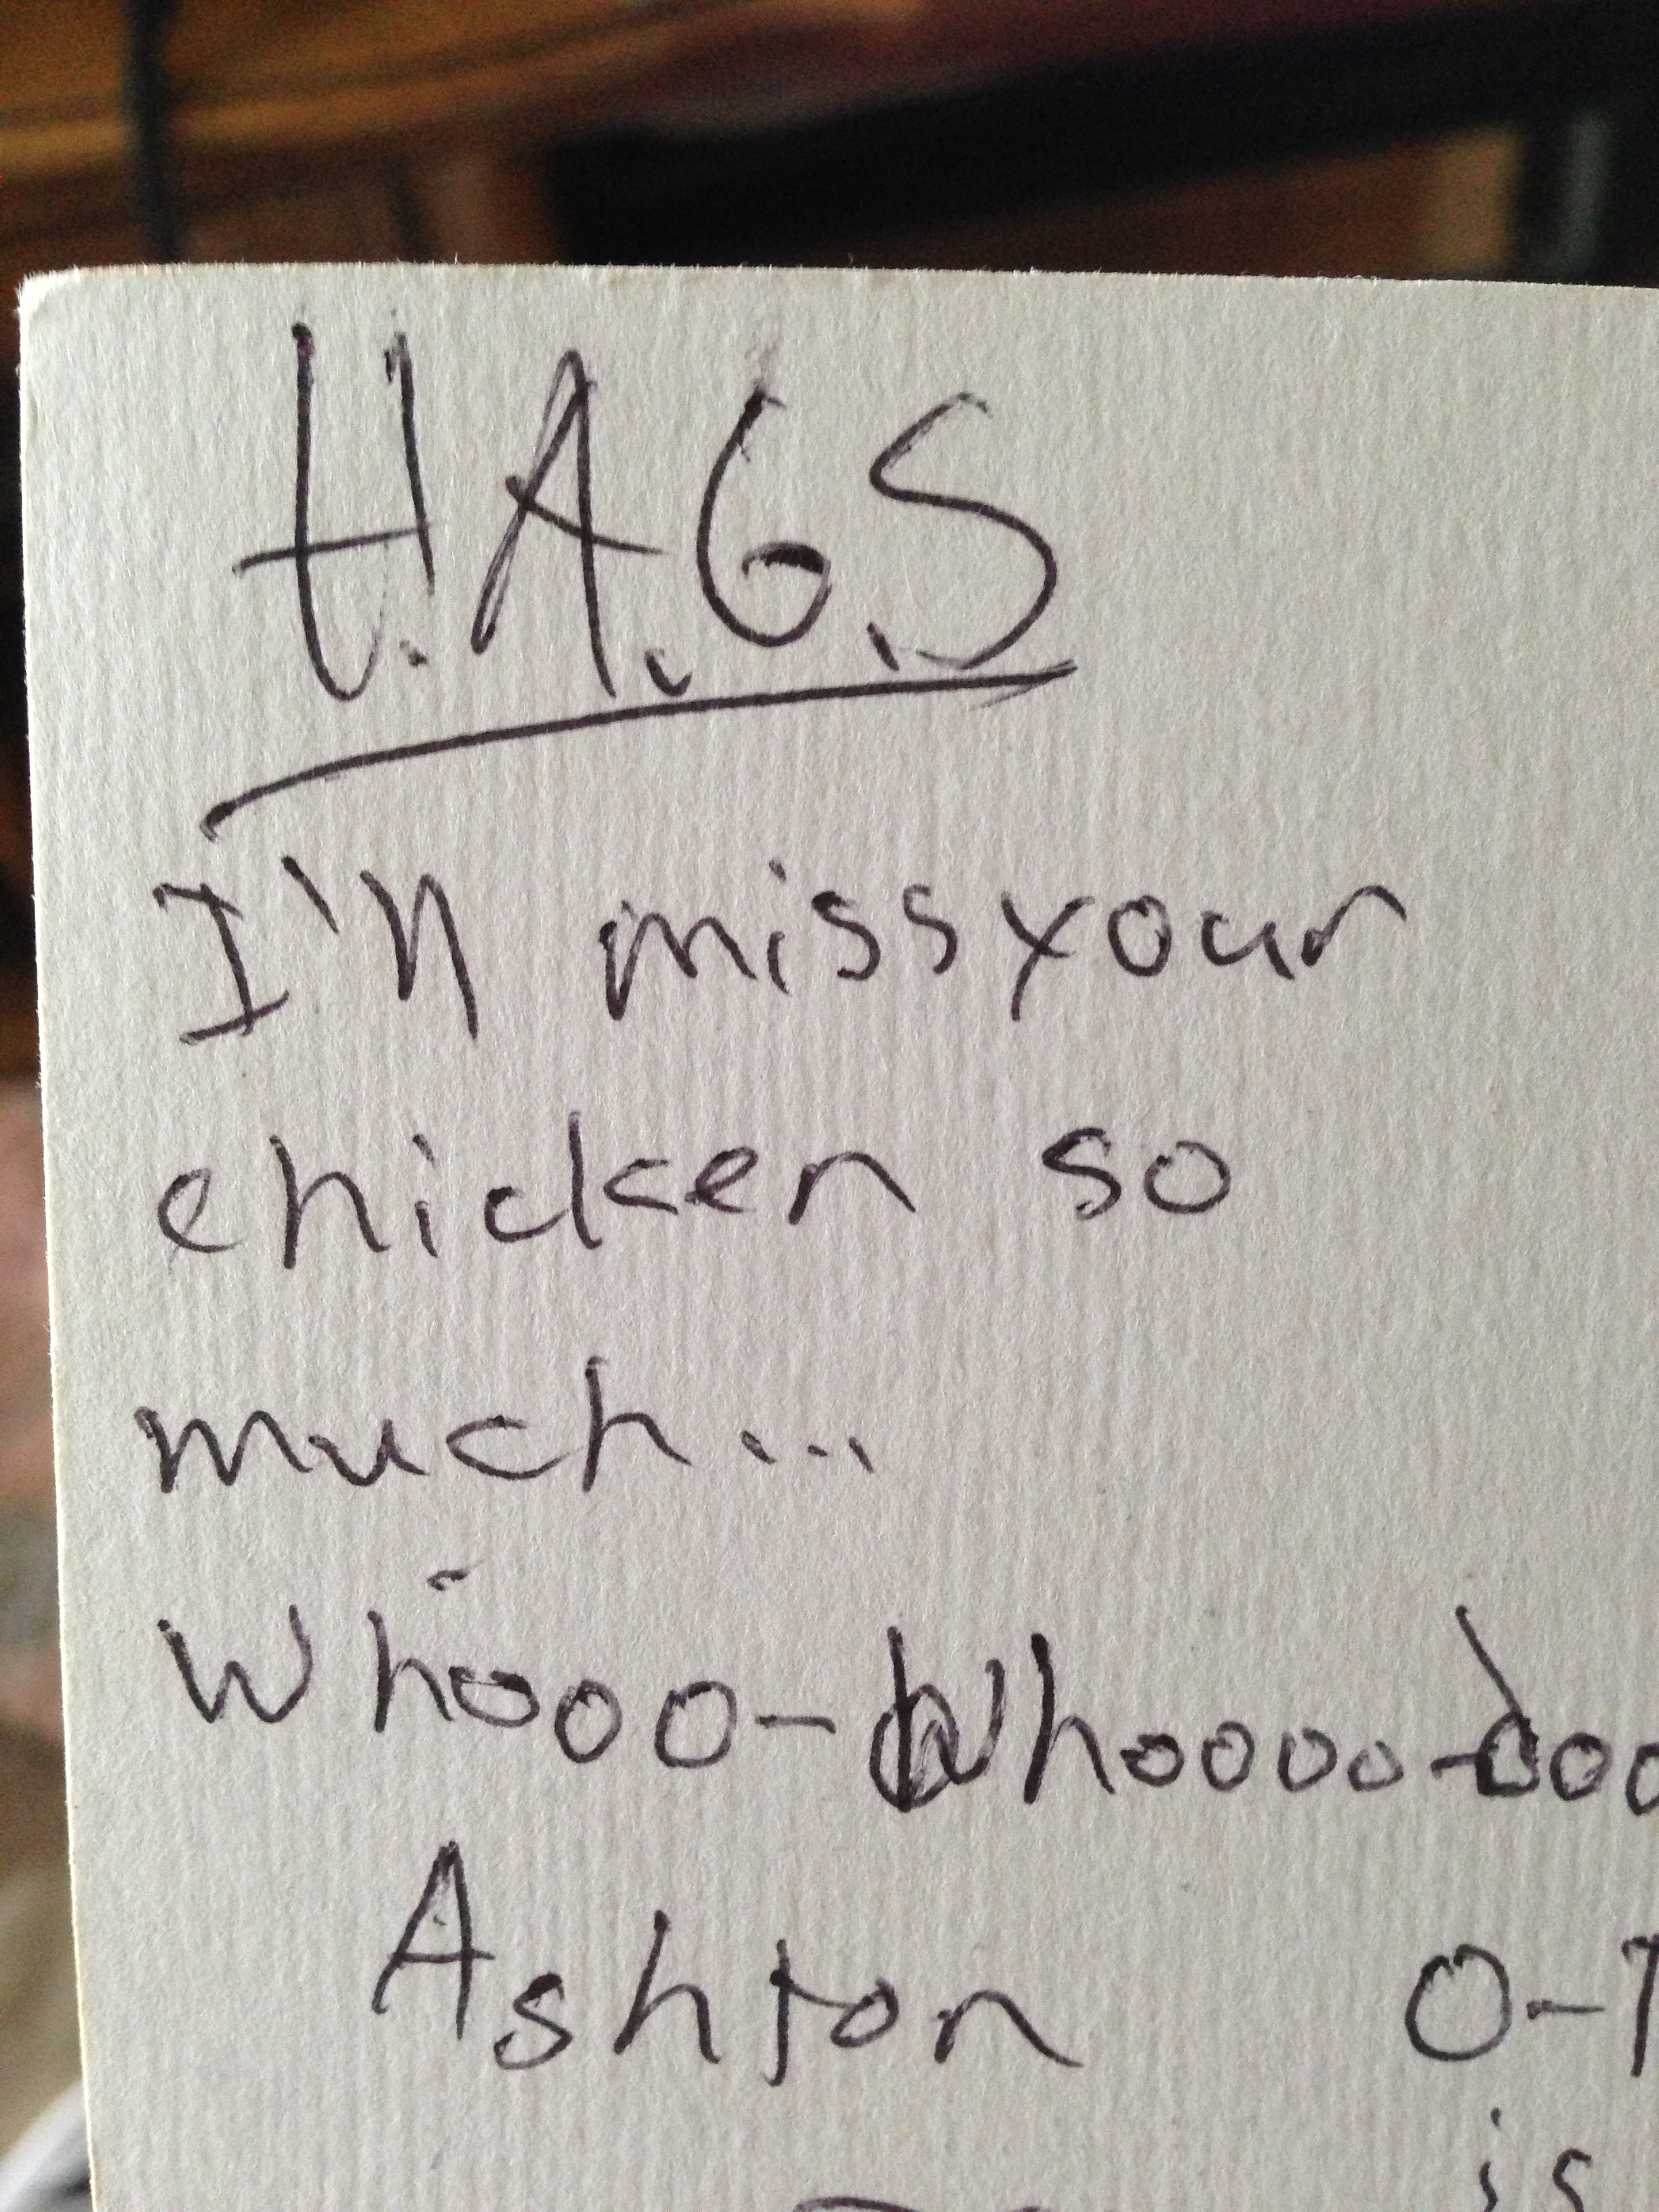 H.A.G.S
I'll miss your
chicken so
much...
Whooo-Whoooo-doo
Ashton O-
is